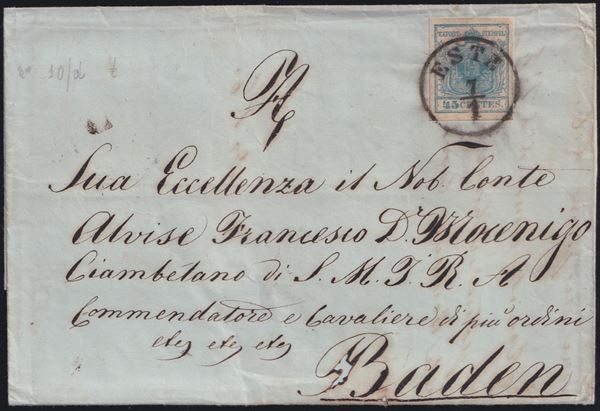 ESTE
7/4
45 CENTES.
Sua Eccellenza il Nob. Conte
Alvise Francesco Dr. Mocenigo
Ciambelano di S. M. I. R. A
Commendatore e Cavaliere di più ordini
etc etc etc
Baden